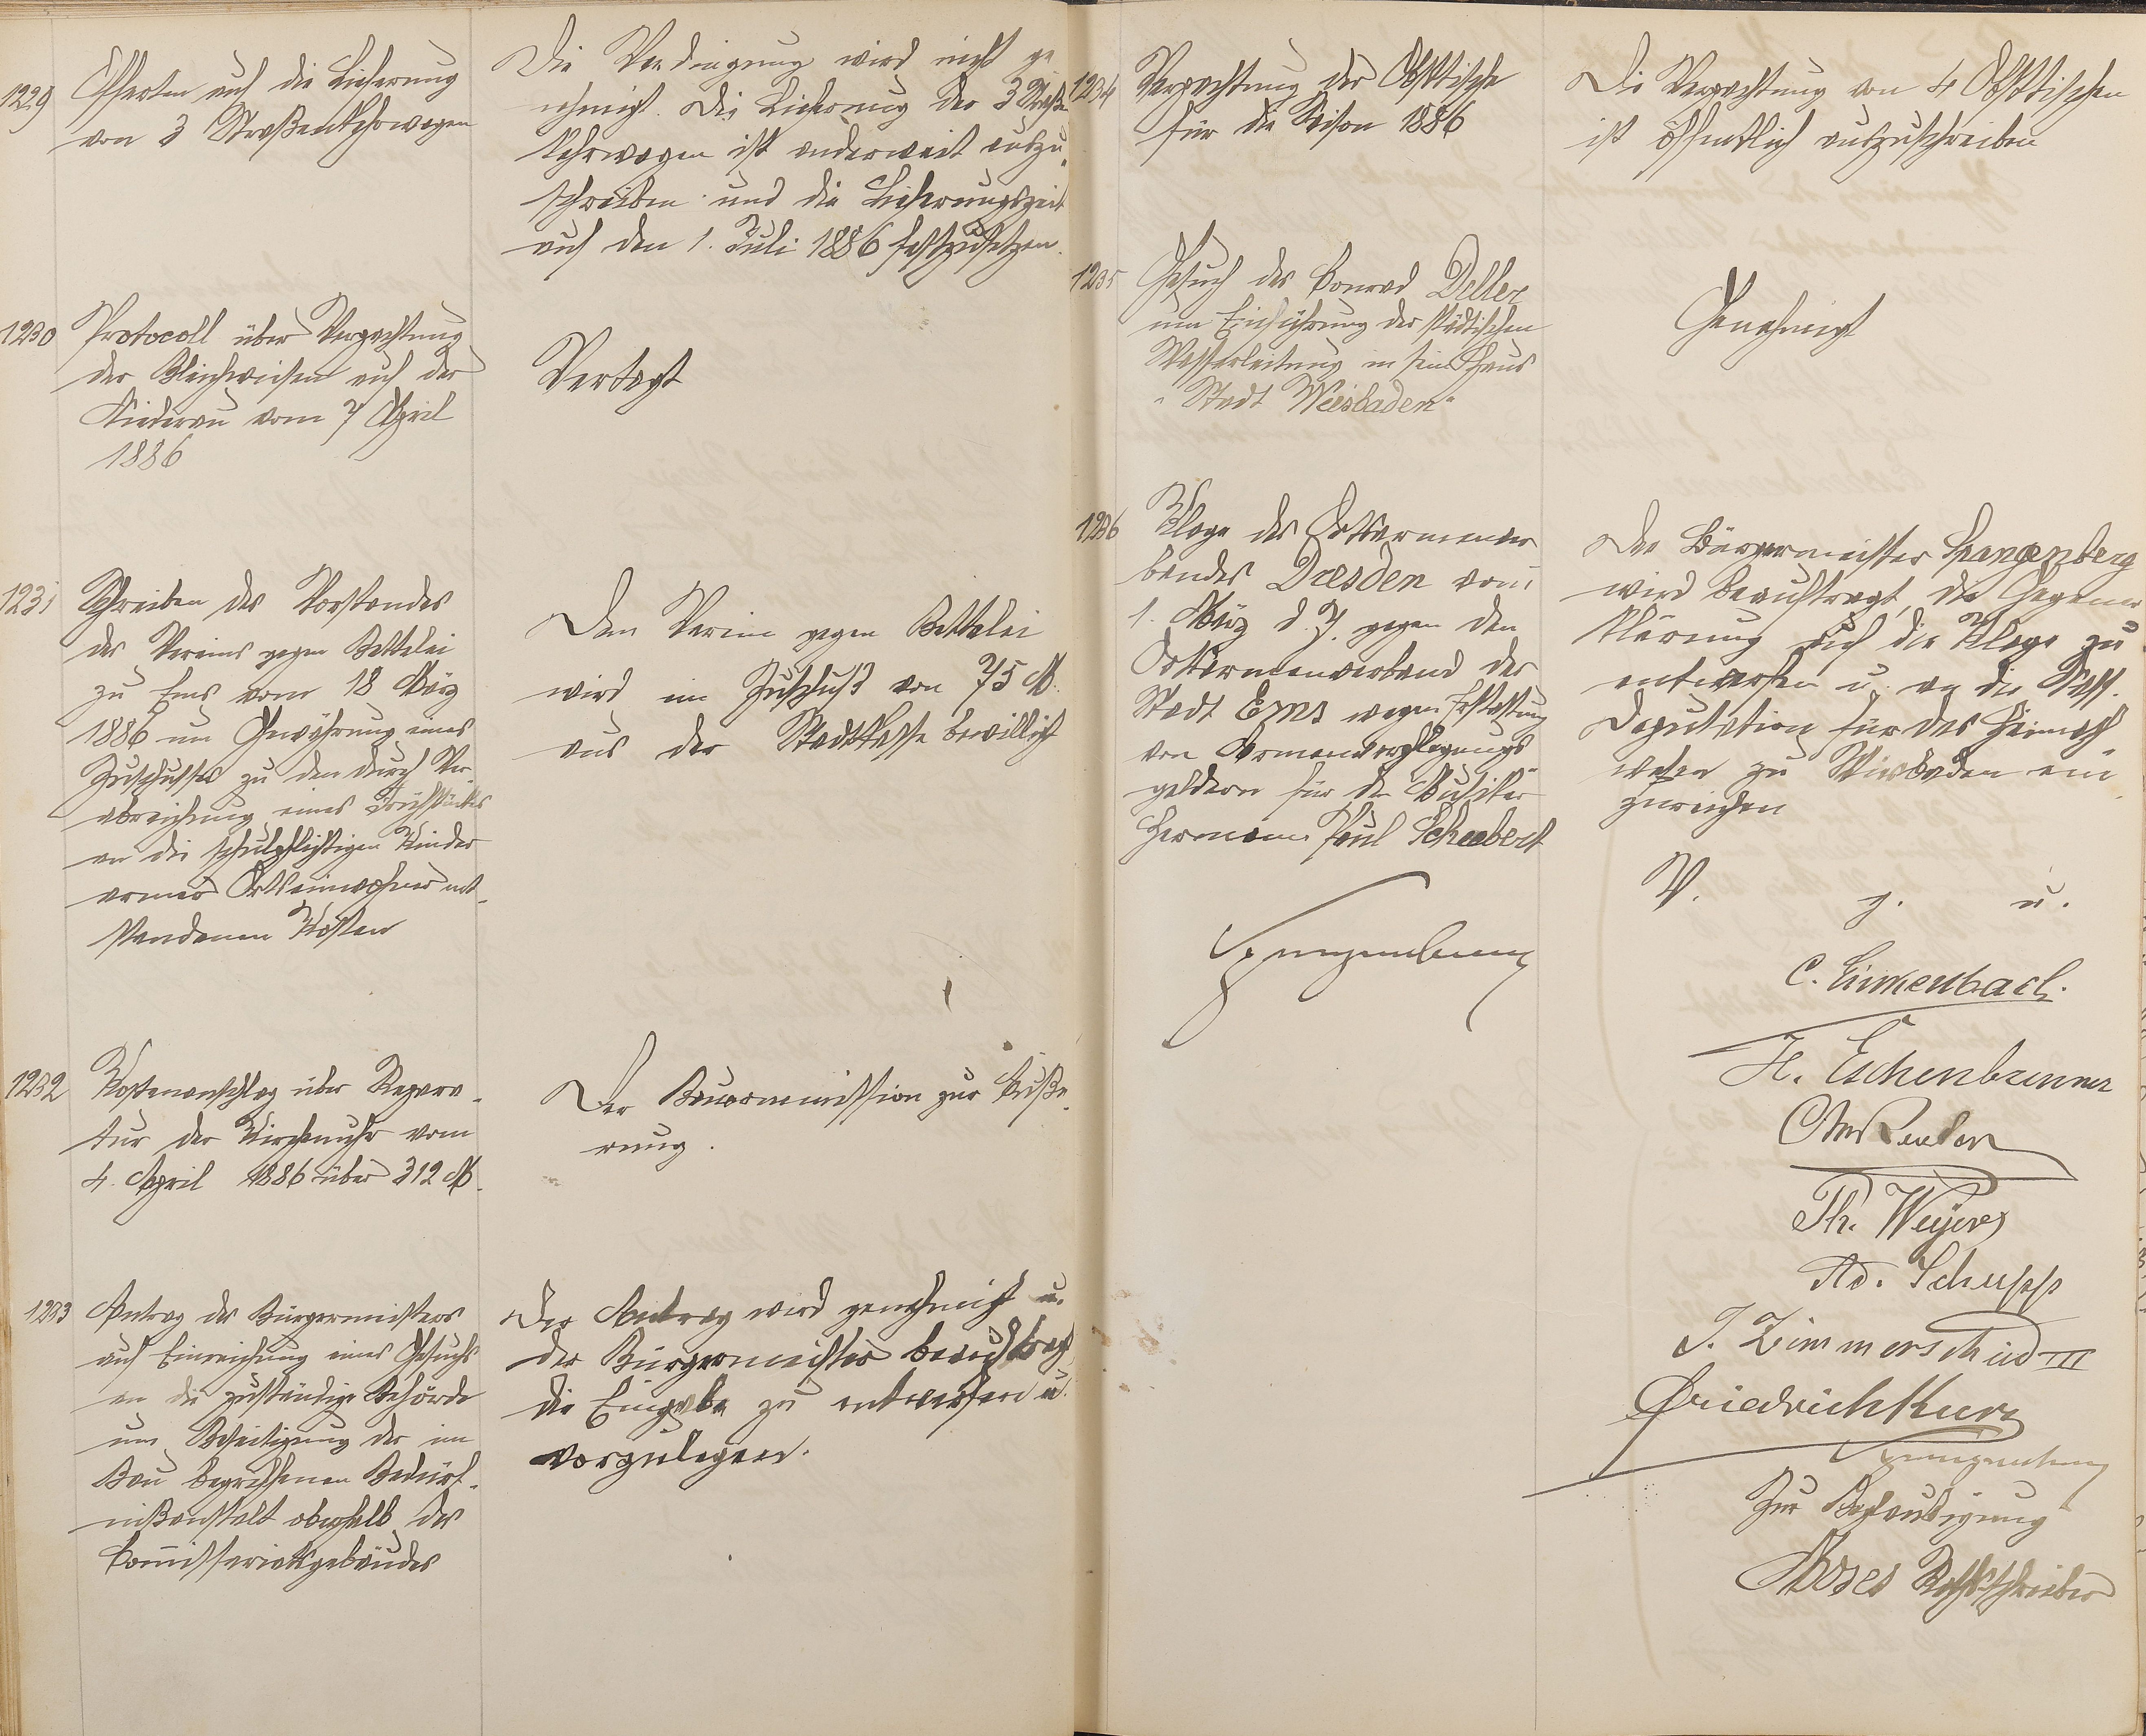 1229
Offerten auf die Lieferung
von 3 Straßenkehrwagen
Die Verdingung wird nicht ge
nehmigt. Die Lieferung der 3 Straßen
kehrwagen ist anderweit auszu-
schreiben und die Lieferungszeit
auf den 1. Juli 1886 festzusetzen.
1230
Protocoll über Verpachtung
der Bleichwiesen auf der
Niederau vom 7 April
1886
Vertagt
1231
Schreiben des Vorstandes
des Vereins gegen Bettelei
zu Ems vom 18 März
1886 um Gewährung eines
Zuschusses zu den durch Ver-
abreichung eines Frühstückes
an die schulpflichtigen Kinder
armer Ortseinwohner ent-
standenen Kosten
Dem Verein gegen Bettelei
wird ein Zuschuß von 75 M.
aus der Stadtkasse bewilligt
1232
Kostenanschlag über Repara-
tur der Kirchenuhr vom
4. April 1886 über 312 M.
Der Baucommission zur Äuße-
rung.
1233
Antrag des Bürgermeisters
auf Einreichung eines Gesuchs
an die zuständige Behörde
um Beseitigung der im
Bau begriffenen Bedürf-
nißanstalt oberhalb des
Commissariatsgebäudes
Der Antrag wird genehmigt u.
der Bürgermeister beauftragt
die Eingabe zu entwerfen u.
vorzulegen.
1234
Verpachtung der Obsttische
für die Saison 1886
Die Verpachtung von 4 Obsttischen
ist öffentlich auszuschreiben
1235
Gesuch des Conrad Deller
um Einführung der städtischen
Wasserleitung in sein Haus
"Stadt Wiesbaden"
Genehmigt
1236
Klage des Ortsarmenver
bandes Dresden vom
1. März d. J. gegen den
Ortsarmenverband der
Stadt Ems wegen Erstattung
von Armenverpflegungs-
geldern für den Musiker
Hermann Paul Schubert
Der Bürgermeister Spangenberg
wird beauftragt, die Gegener
klärung auf die Klage zu
entwerfen u. an die
Deputation für das Heimath-
wesen zu Wiesbaden ein
zureichen
V. g. u.
Spangenberg
C. Linkenbach.
H. Eschenbrenner
Th. Weyers
Ad. Schupp
J. Zimmerschied III
Friedrich Kurz
Spangenberg
Zur Beglaubigung
Moses Rathsschreiber